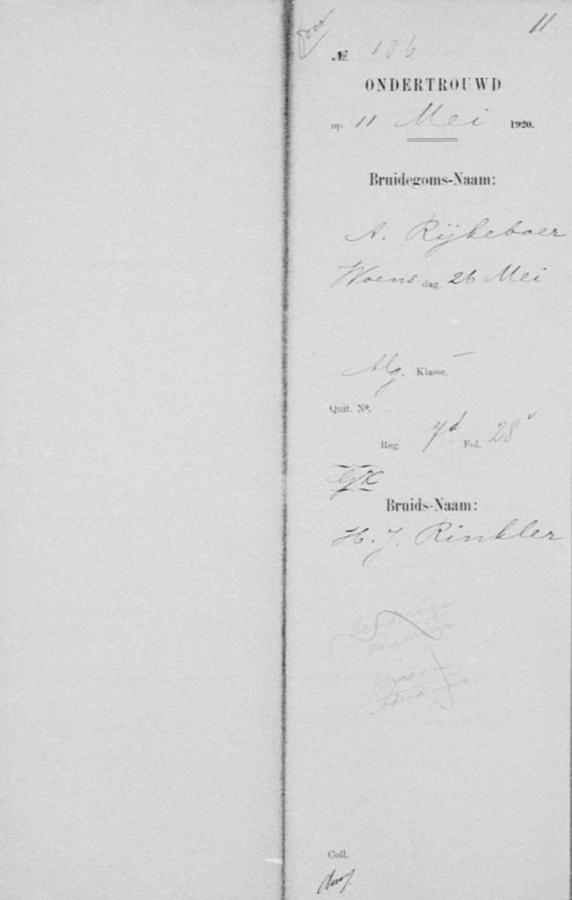 11
№ 136
ONDERTROUWD
op 11 Mei 1920.
Bruidegoms-Naam:
A. Rijkeboer
Woens dag 26 Mei
Alg. Klasse.
Quit. Nº.
Reg. 7d Fol. 28v
Bruids-Naam:
H. J. Rinkler
Coll.